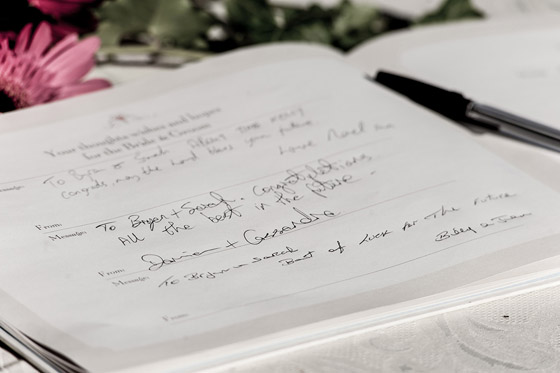 Your thoughts wishes and hopes
for the Bride & Groom
Message:
To Bryn & Sarah
Congrats, may the Lord bless you future
Love
From:
Message: To Bryn + Sarah. Congratulations.
All the best in the future.
From: Damien + Cassandra
Message: To Bryn & Sarah
Best of Luck for The Future
From: Billy